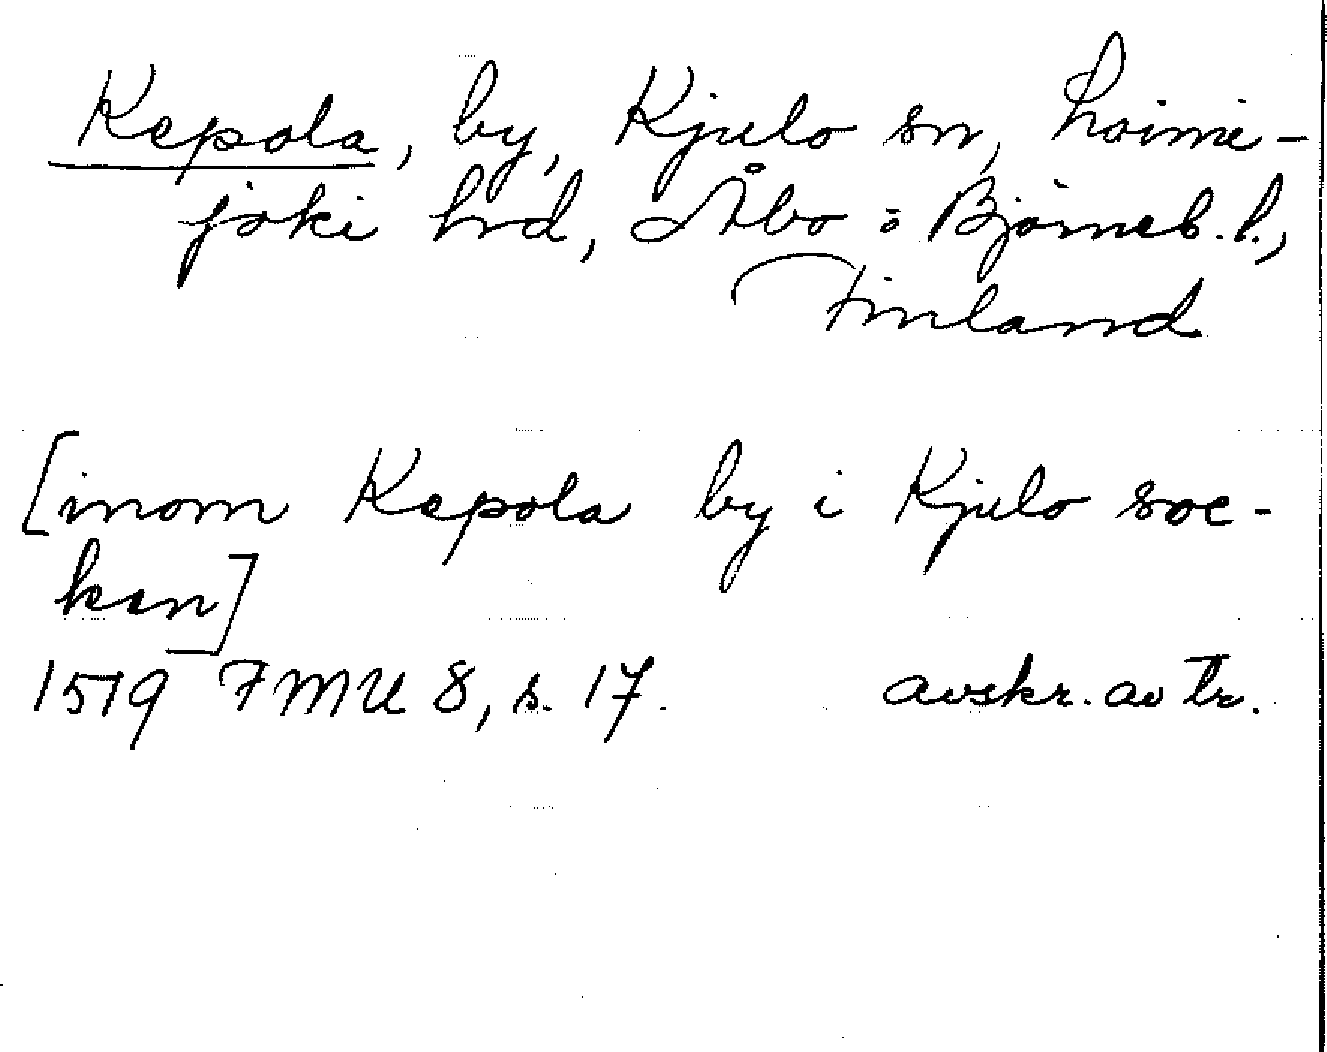 Kepola, by, Kjulo sn, Loimi-
joki hrd, Åbo o Björneb. l.,
Finland
[inom Kepola by i Kjulo soc-
ken]
1519 FMU 8, s. 17. avskr. av tr.